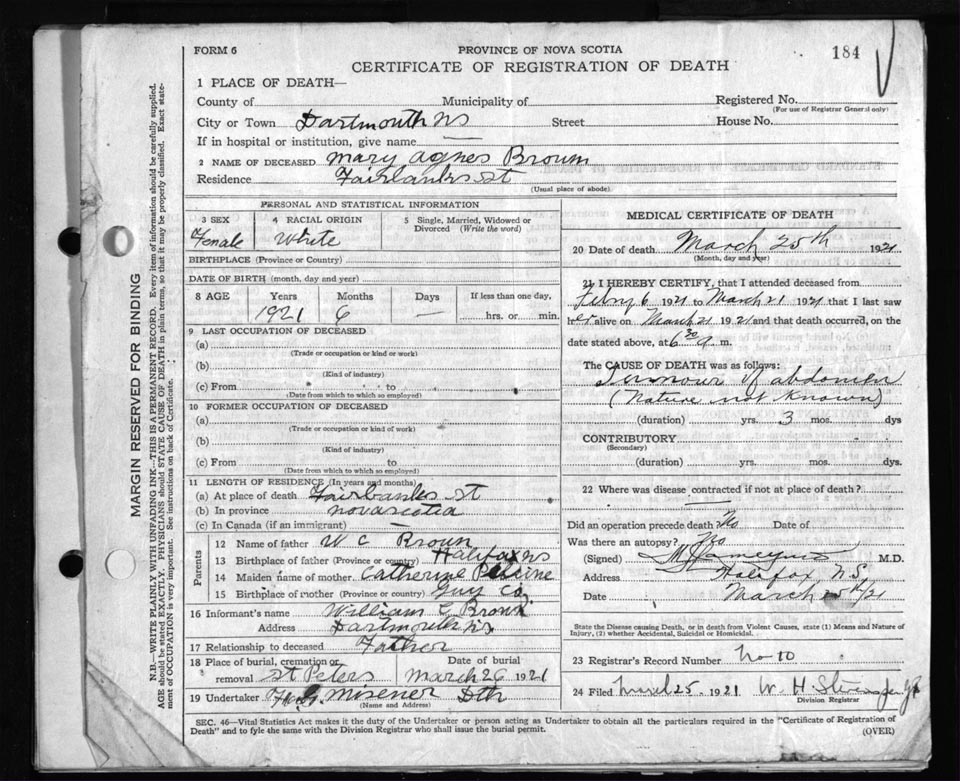 FORM 6
PROVINCE OF NOVA SCOTIA
184
CERTIFICATE OF REGISTRATION OF DEATH
1 PLACE OF DEATH—
County of Municipality of Registered No.
(For use of Registrar General only)
City or Town Dartmouth NS Street House No.
If in hospital or institution, give name —
2 NAME OF DECEASED Mary Agnes Brown
Residence Fairbanks St
(Usual place of abode)
PERSONAL AND STATISTICAL INFORMATION
3 SEX 4 RACIAL ORIGIN 5 Single, Married, Widowed or Divorced (Write the word)
Female White
BIRTHPLACE (Province or Country)
DATE OF BIRTH (month, day and year)
8 AGE Years Months Days If less than one day,
1921 6 — hrs. or min.
9 LAST OCCUPATION OF DECEASED
(a)
(Trade or occupation or kind or work)
(b)
(Kind of industry)
(c) From to
(Date from which to which so employed)
10 FORMER OCCUPATION OF DECEASED
(a)
(Trade or occupation or kind of work)
(b)
(Kind of industry)
(c) From to
(Date from which to which so employed)
11 LENGTH OF RESIDENCE (In years and months)
(a) At place of death Fairbanks St
(b) In province Novascotia
(c) In Canada (if an immigrant) —
Parents
12 Name of father W C Brown
13 Birthplace of father (Province or country) Halifax NS
14 Maiden name of mother Catherine
15 Birthplace of mother (Province or country) Guy Co,
16 Informant's name William C Brown
Address Dartmouth NS
17 Relationship to deceased Father
18 Place of burial, cremation or removal St Peters
Date of burial March 26 1921
19 Undertaker Misener Dth
(Name and Address)
MEDICAL CERTIFICATE OF DEATH
20 Date of death March 25th 1921
(Month, day and year)
21 I HEREBY CERTIFY, that I attended deceased from
Febry 6 1921 to March 21 1921 that I last saw
her alive on March 21 1921 and that death occurred, on the
date stated above, at 6 30 a m.
The CAUSE OF DEATH was as follows:
Tumour of abdomen
(Nature not known)
(duration) yrs. 3 mos. dys
CONTRIBUTORY
(Secondary)
(duration) yrs. mos. dys.
22 Where was disease contracted if not at place of death?
Did an operation precede death? No Date of
Was there an autopsy? No
(Signed) M.D.
Address Halifax N.S.
Date March 25th/21
State the Disease causing Death, or in death from Violent Causes, state (1) Means and Nature of
Injury, (2) whether Accidental, Suicidal or Homicidal.
23 Registrar's Record Number No 10
24 Filed March 25 1921 W. H.
Division Registrar
SEC. 46—Vital Statistics Act makes it the duty of the Undertaker or person acting as Undertaker to obtain all the particulars required in the "Certificate of Registration of
Death" and to fyle the same with the Division Registrar who shall issue the burial permit.
(OVER)
MARGIN RESERVED FOR BINDING
N.B.—WRITE PLAINLY WITH UNFADING INK—THIS IS A PERMANENT RECORD. Every item of information should be carefully supplied.
AGE should be stated EXACTLY. PHYSICIANS should STATE CAUSE OF DEATH in plain terms, so that it may be properly classified. Exact statement of OCCUPATION is very important. See instructions on back of Certificate.